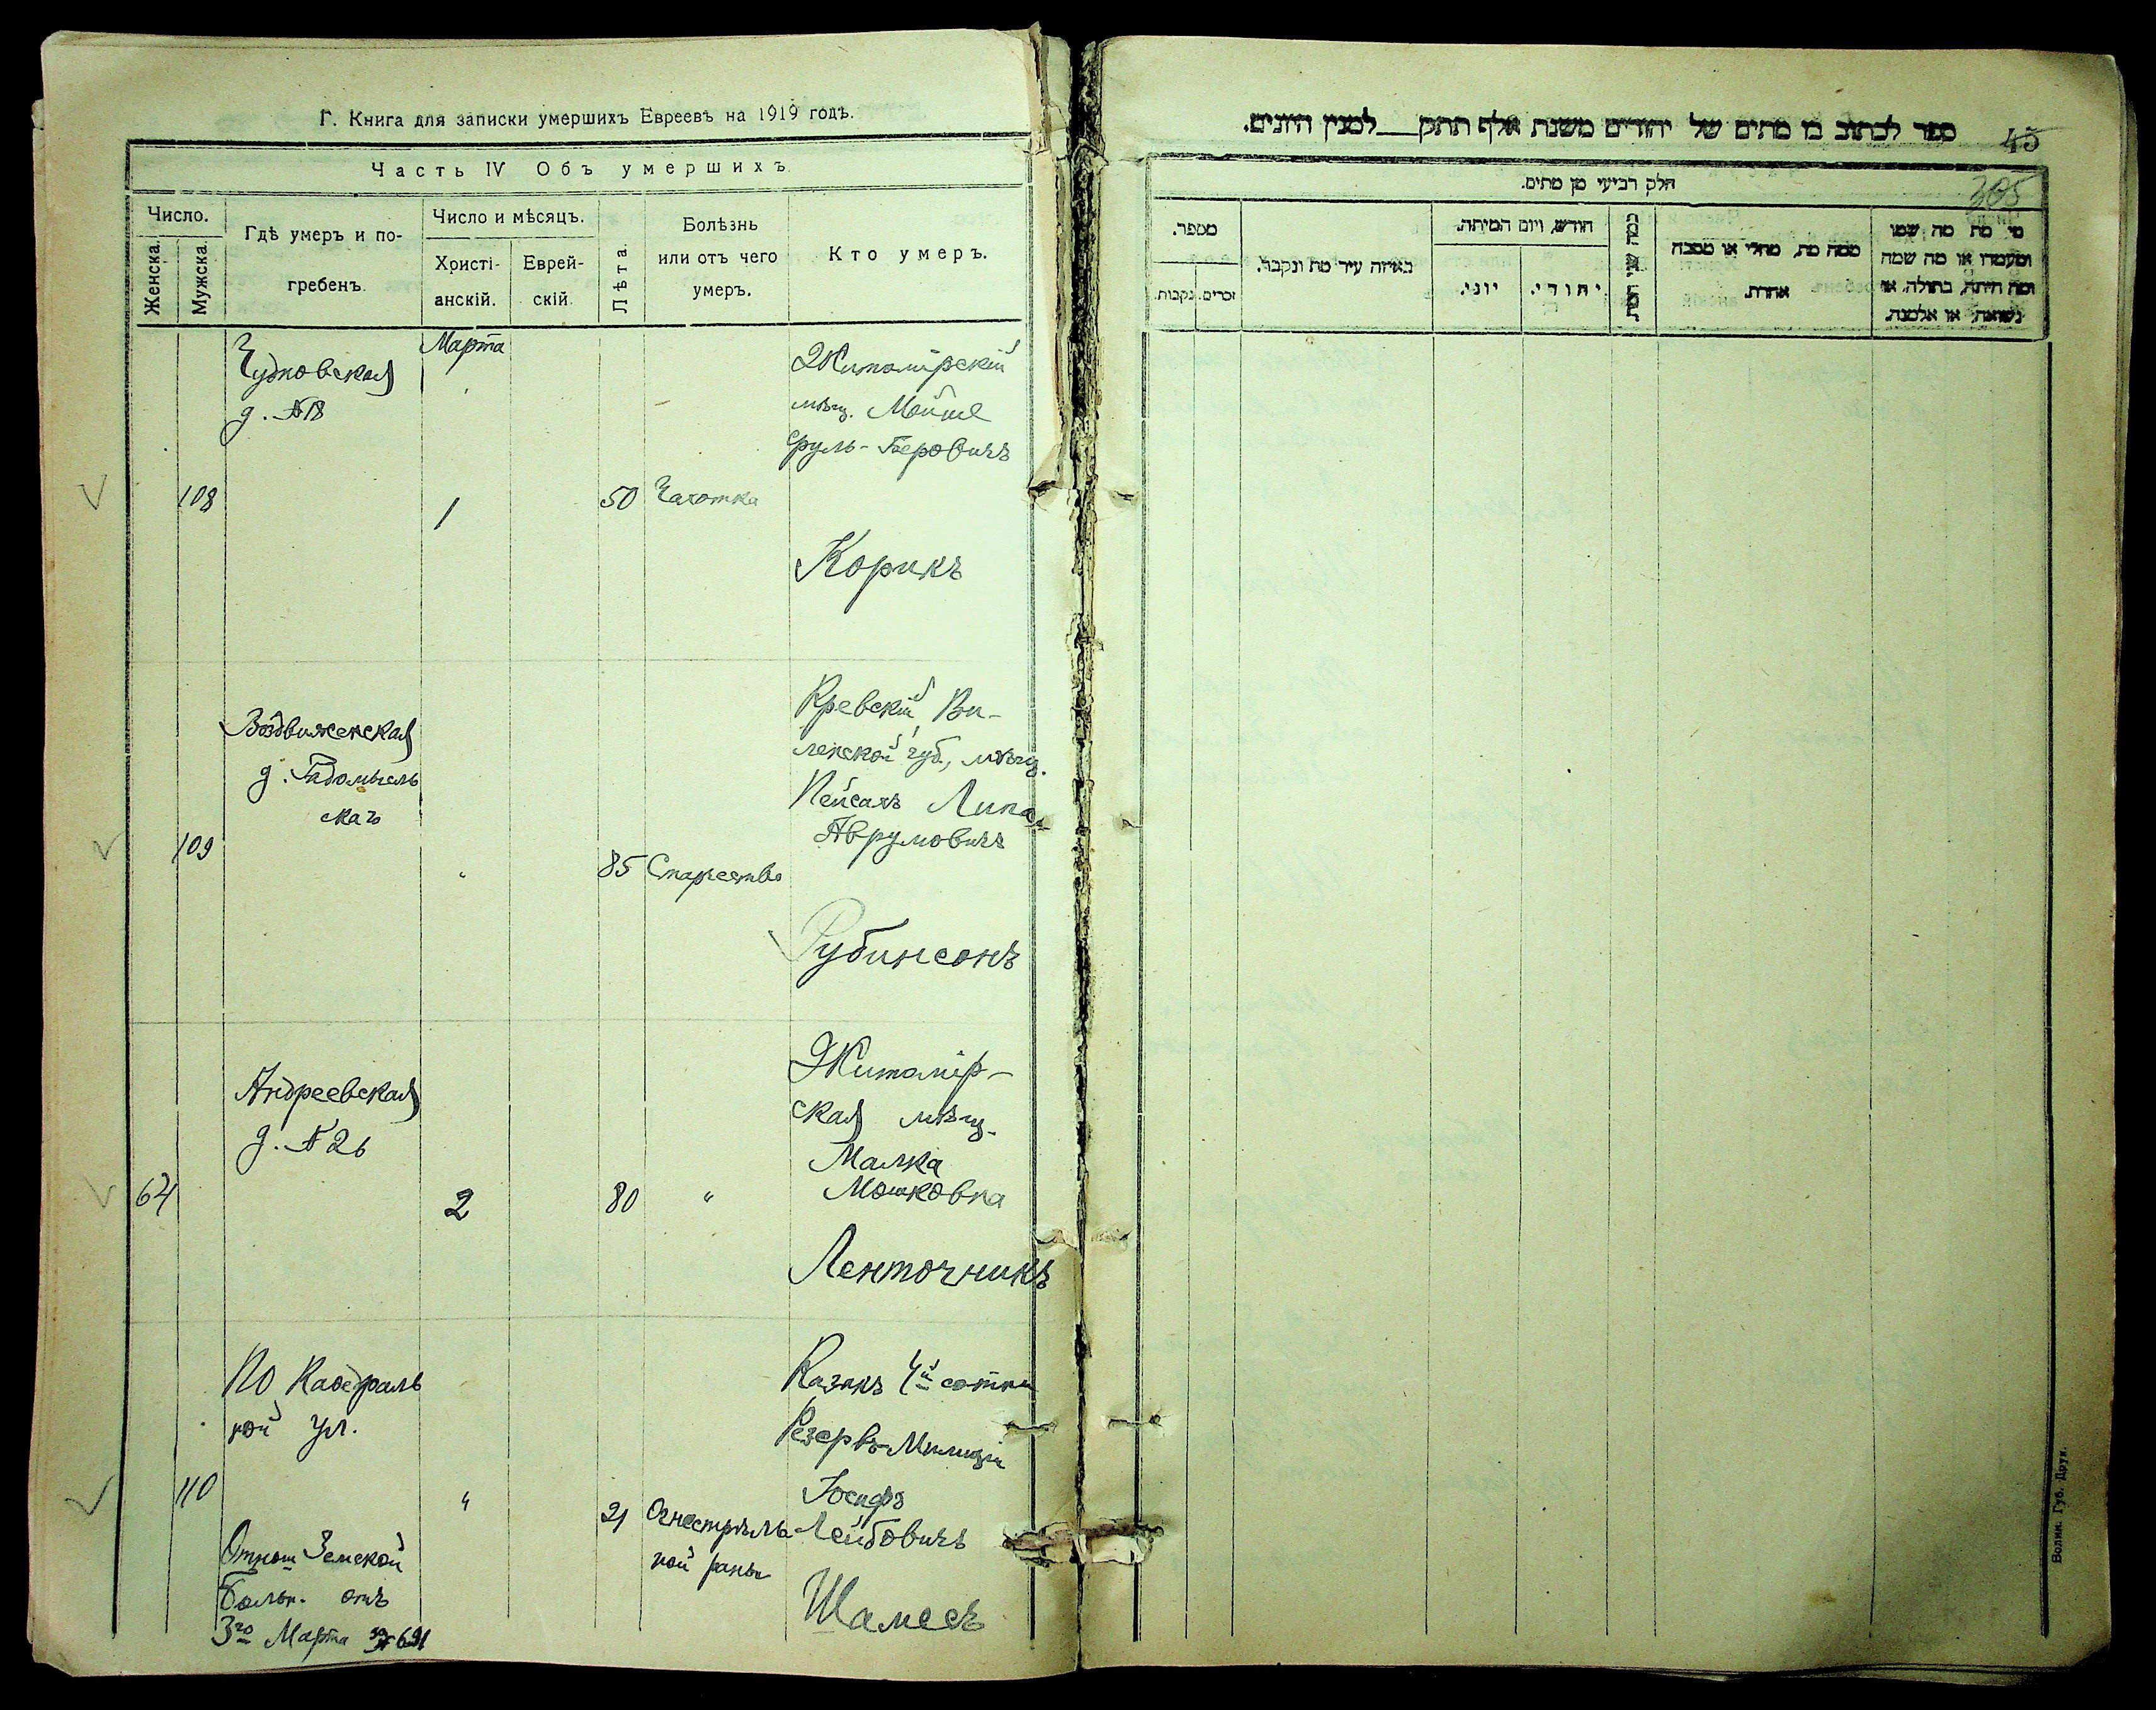 Г. Книга для записки умершихъ Евреевъ на 1919 годъ.
Часть IV Объ умершихъ.
Число.
Женска.
Мужска.
Гдѣ умеръ и по-
гребенъ.
Число и мѣсяцъ.
Христі-
анскій.
Еврей-
скій.
Лѣта.
Болѣзнь
или отъ чего
умеръ.
Кто умеръ.
Марта
108
Чудновская
д. №18
1
50
Чахотка
Житомірскій
мѣщ. Мойше
Сруль-Беровичъ
Корикъ
109
Воздвиженская
д. Радомысль
скаго
"
85
Старчество
Кревскій Ви-
ленской губ., мѣщ.
Пейсахъ Липа
Аврумовичъ
Рубинсонъ
64
Андреевская
д. № 26
2
80
"
Житомір-
ская мѣщ.
Малка
Мошковна
Ленточникъ
110
По Каѳедраль
ной ул.
Отнош Земской
Больн. отъ
3го Марта за № 691
"
21
Огнестрѣль
ной раны
Казакъ 4й сотни
Резерв Милиціи
Іосифъ
Лейбовичъ
Шамесъ
ספר לכתוב בו מתים של יהודים משנת אלף תתק___למנין היונים.
45
305
חלק רביעי מן מתים.
מספר.
זכרים.
נקבות.
באיזה עיר מת ונקבר.
חודש, ויום המיתה.
יוני.
יהודי.
כמה שני המת
ממה מת, מחלי או מסבה
אחרת.
מי מת מה שמו
ומעמדו או מה שמה
ומה היתה, בתולה, או
נשואה, או אלמנה.
Волин. Губ. Друк.